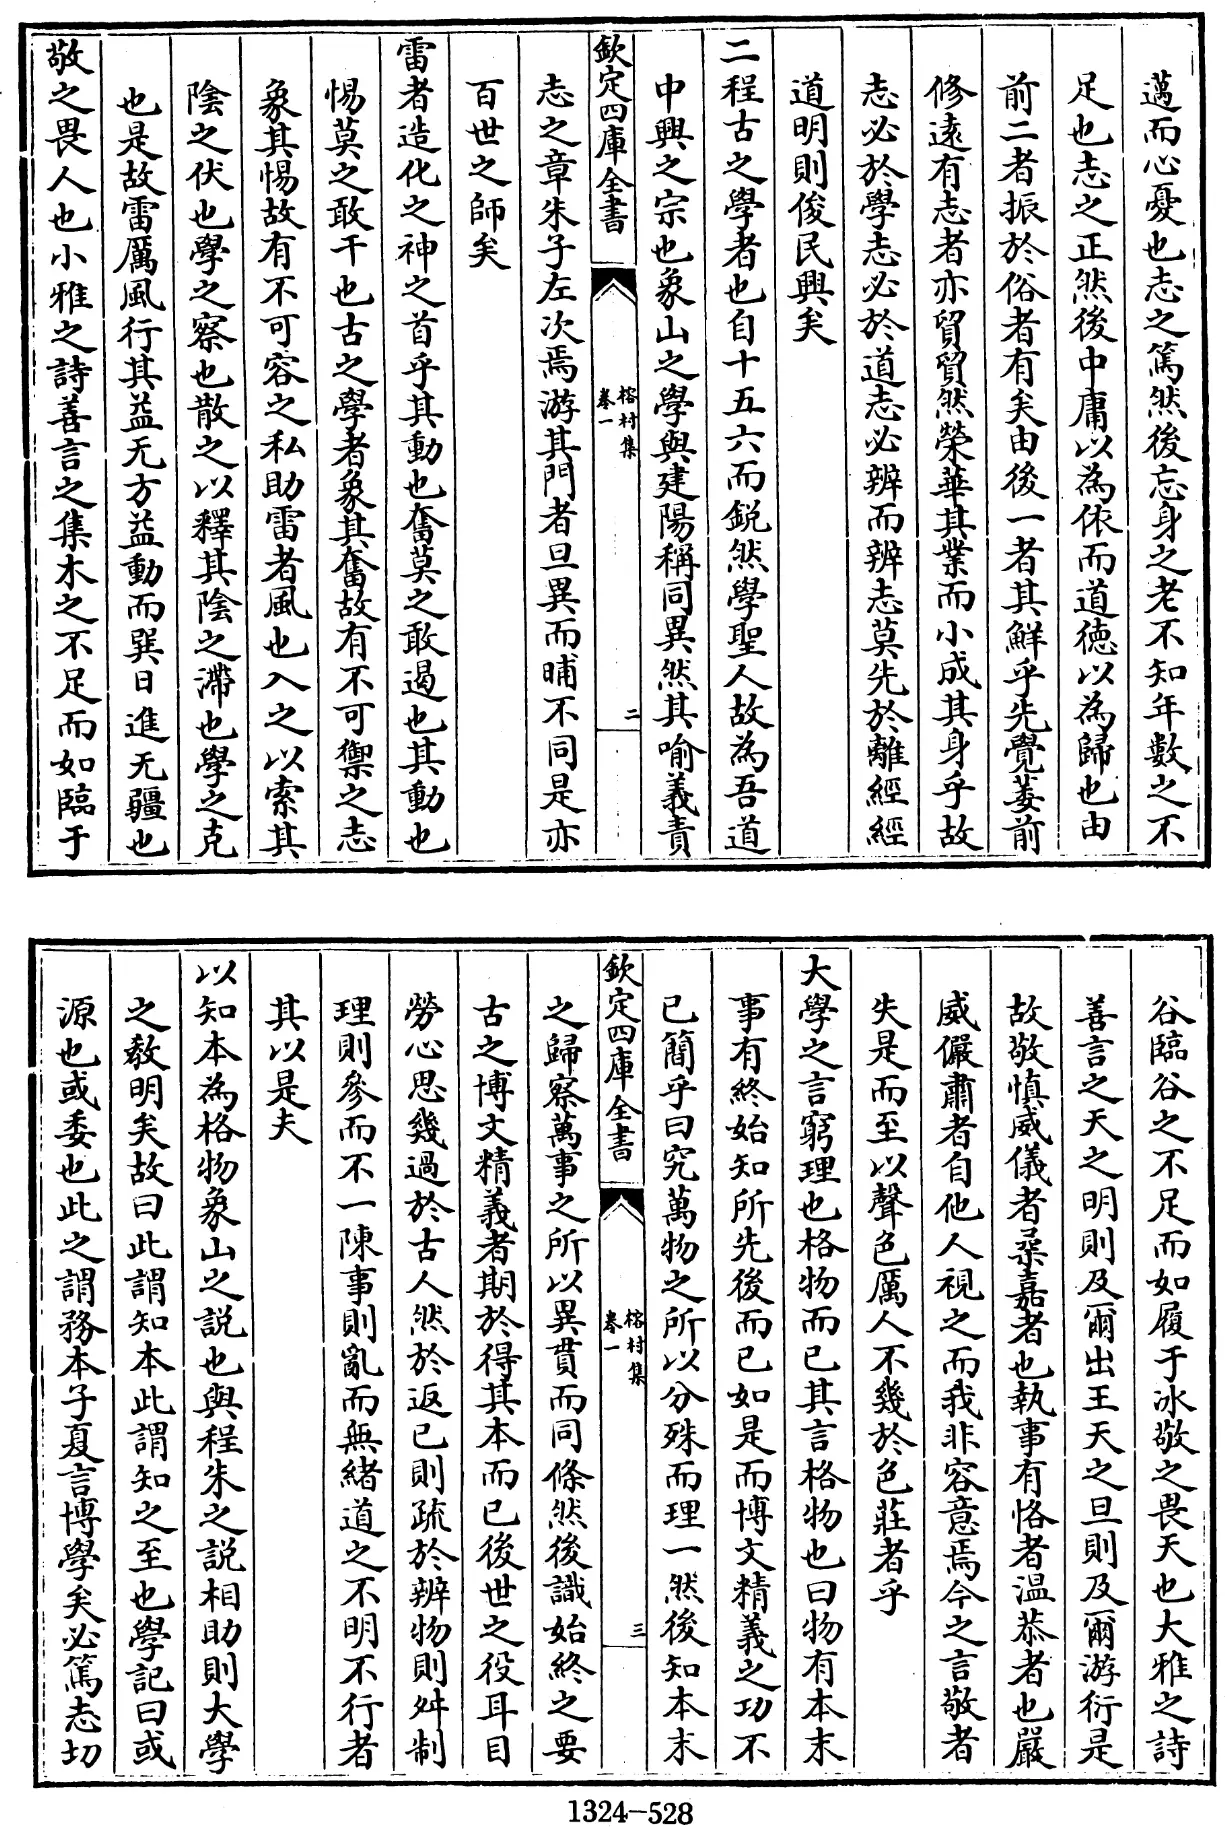 邁而心憂也志之篤然後忘身之老不知年數之不
足也志之正然後中庸以為依而道德以為歸也由
前二者振於俗者有矣由後一者其鮮乎先覺萎前
修遠有志者亦貿貿然榮華其業而小成其身乎故
志必於學志必於道志必辨而辨志莫先於離經經
道明則俊民興矣
二程古之學者也自十五六而銳然學聖人故為吾道
中興之宗也象山之學與建陽稱同異然其喻義責
欽定四庫全書
榕村集
卷一
二
志之章朱子左次焉游其門者旦異而晡不同是亦
百世之師矣
雷者造化之神之首乎其動也奮莫之敢遏也其動也
惕莫之敢干也古之學者象其奮故有不可禦之志
象其惕故有不可容之私助雷者風也入之以索其
陰之伏也學之察也散之以釋其陰之滯也學之克
也是故雷厲風行其益无方益動而巽日進无疆也
敬之畏人也小雅之詩善言之集木之不足而如臨于
谷臨谷之不足而如履于冰敬之畏天也大雅之詩
善言之天之明則及爾出王天之旦則及爾游衍是
故敬慎威儀者柔嘉者也執事有恪者溫恭者也嚴
威儼肅者自他人視之而我非容意焉今之言敬者
失是而至以聲色厲人不幾於色莊者乎
大學之言窮理也格物而已其言格物也曰物有本末
事有終始知所先後而已如是而博文精義之功不
已簡乎曰究萬物之所以分殊而理一然後知本末
欽定四庫全書
榕村集
卷一
三
之歸察萬事之所以異貫而同條然後識始終之要
古之博文精義者期於得其本而已後世之役耳目
勞心思幾過於古人然於返已則疏於辨物則舛制
理則參而不一陳事則亂而無緒道之不明不行者
其以是夫
以知本為格物象山之說也與程朱之說相助則大學
之教明矣故曰此謂知本此謂知之至也學記曰或
源也或委也此之謂務本子夏言博學矣必篤志切
1324-528